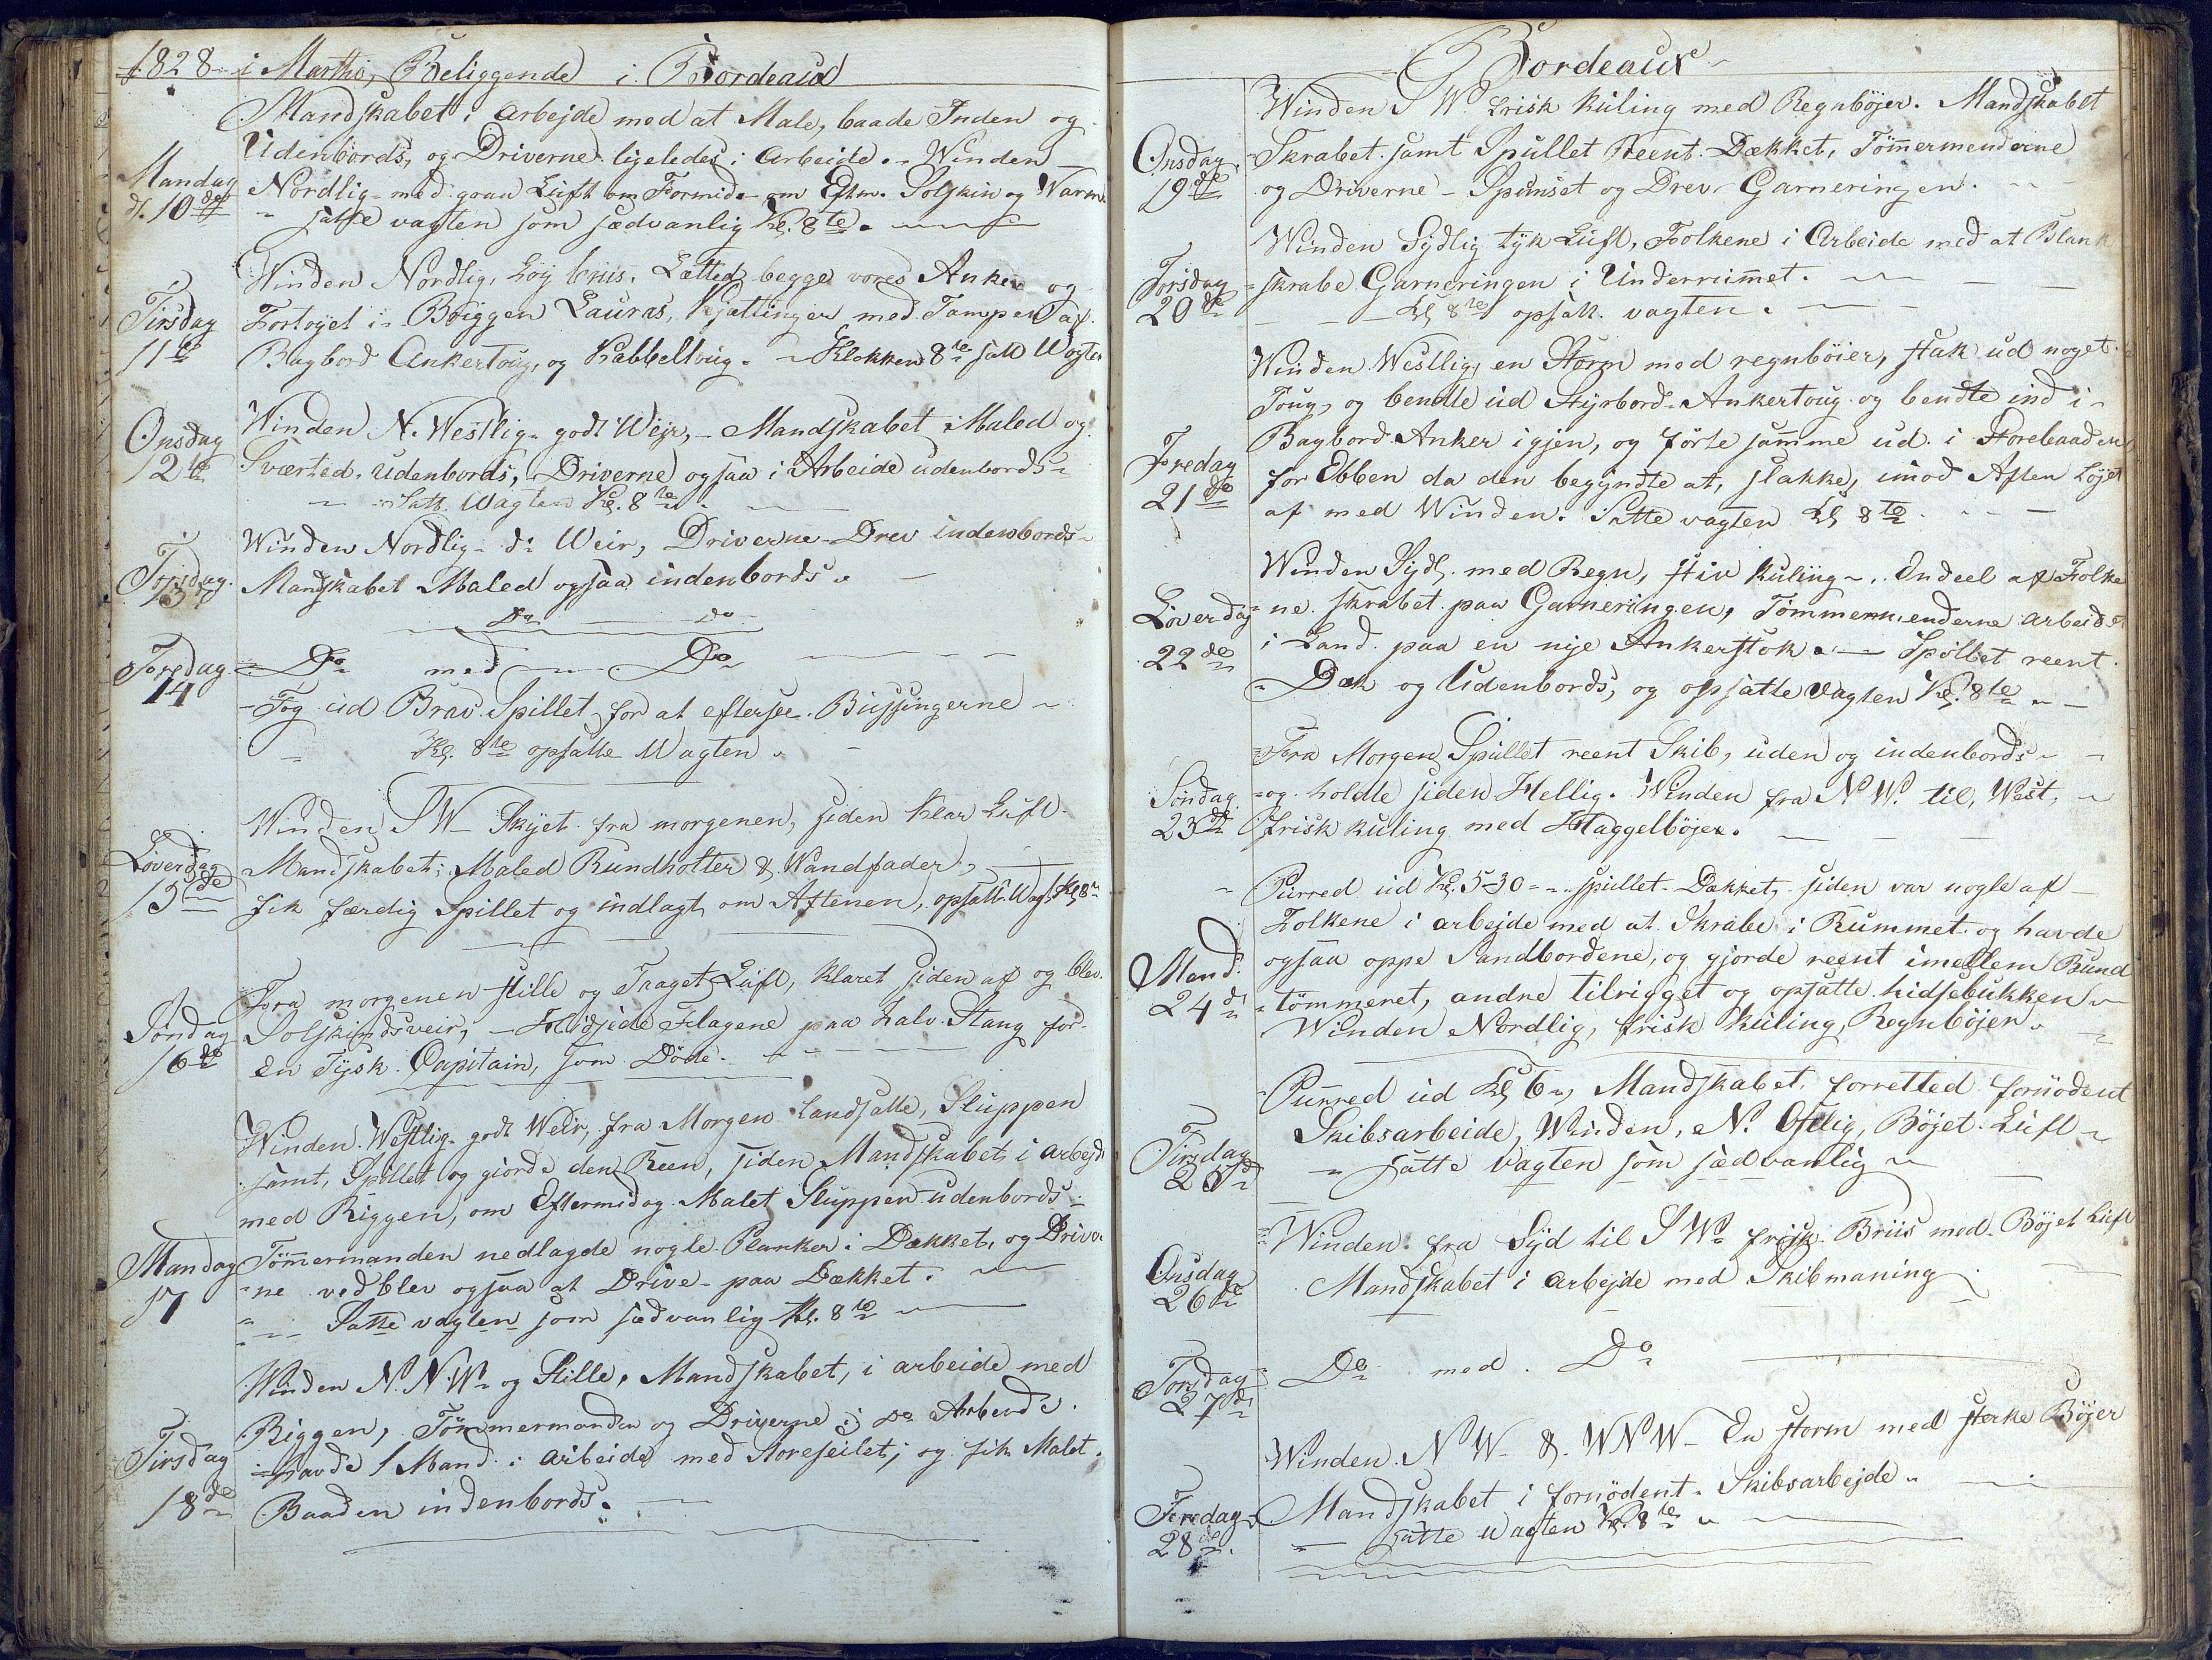 1828 i Martho, Beliggende i Bordeaux
Mandskabet i Arbejde med at Male, baade Inden og
Udenbords, og Driverne ligeledes i Arbeide. Winden
Mandag
d. 10de
Nordlig med graa Luft om Formid. om Eftm. Solskin og Warm.
satte vagten som sædvanlig Kl. 8te.
Winden Nordlig, Løÿ briis. Lætted begge vores Anker og
Tirsdag
11te
Fortøyet i Briggen Lauras, Kjættinger med Tampen af
Bagbord Ankertoug, og Kabbeltoug. Klokken 8te satt Wagten
Onsdag
12te
Winden N. Westlig godt Wejr, Mandskabet Maled og
Sværted Udenbords, Driverne ogsaa i Arbeide udenbords
Satt Wagten Kl. 8te
Winden Nordlig do Weir, Driverne Drev indenbords
Torsdag
13
Mandskabet Maled ogsaa indenbords.
Do Do
Fredag
14
Do med Do
Tog ud Brad Spillet for at eftersee Bussingerne
Kl. 8te opsatte Wagten.
Winden SW Skÿet fra morgenen, siden klar Luft.
Løverdag
15de
Mandskabet Maled Rundholter & Wandfader,
fik færdig Spillet og indlagt om Aftenen, opsatt Wagt Kl 8te
Fra morgenen stille og Taaget Luft, klaret siden af og blev
Søndag
16de
Solskindsveir, Heidsede Flagene paa halv Stang for
en Tÿsk Capitain, som Døde.
Winden Westlig godt Weir, fra Morgen landsatte, Sluppen
samt, Spillet og giorde den Reen, siden Mandskabet i arbejde
med Riggen, om Eftermidag Malet Sluppen udenbords.
Mandag
17
Tømmermanden nedlagde nogle Planker i Dækket, og Driver
ne vedblev ogsaa at Drive paa Dækket.
Satte vagten som sædvanlig Kl. 8te
Winden N.N.W. og Stille, Mandskabet, i arbeide med
Riggen, Tømmermanden og Driverne i Do Arbeide.
Tirsdag
18de
havde 1 Mand i Arbeide med Storeseilet, og fik Malet
Baaden indenbords.
Bordeaux
Winden S W. Frisk Kuling med Regnböjer. Mandskabet
Onsdag
19de
Skrabet samt Spullet Reent Dækket, Tömmermenderne
og Driverne Spunset og Drev Garneringen.
Winden Sÿdlig tÿk Luft, Folkene i Arbeide med at Blank
Torsdag
20de
skrabe Garneringen i Underrummet.
Kl 8te opsatt vagten.
Winden Westlig, en Storm med regnböier, stak ud noget
Toug, og bendte ud Styrbord Ankertoug og bendte ind i
Fredag
21de
Bagbord Anker igjen, og førte samme ud i Storebaaden,
for Ebben da den begyndte at, slakke, imod Aften Løjet
af med Winden. Satte vagten Kl 8te
Winden Sÿdl. med Regn, stiv Kuling. Endeel af Folke
Løverdag
22de
ne skrabet paa Garneringen, Tömmermenderne arbeidet
i Land paa en nÿe Ankerstok. Spøllet reent
Dæk og Udenbords, og opsatte vagten Kl. 8te
Fra Morgen Spullet reent Skib, uden og indenbords
Søndag
23de
og holdte siden Hellig. Winden fra N W. til, West,
frisk kuling med Haggelböjer.
Purred ud Kl. 5-30 spullet Dækket, siden var nogle af
Folkene i arbejde med at Skrabe i Rummet og havde
Mand.
24de
ogsaa oppe Sandbordene, og gjorde reent imellem Bund
tømmeret, andre tilrigget og opsatte hidsebukken
Winden Nordlig, frisk kuling, Regnböjer.
Purred ud Kl 6, Mandskabet forretted fornødent
Tirsdag
25de
Skibsarbeide, Winden, N. Ostlig, Böjet Luft
satte Vagten som sædvanlig
Onsdag
26de
Winden fra Sÿd til S W. frisk Briis med Böjet Luft
Mandskabet i arbejde med Skibmaning
Torsdag
27de
Do med Do
Winden N W & WNW En storm med sterke Böjer
Fredag
28de
Mandskabet i fornødent Skibsarbejde
satte Wagten Kl. 8te